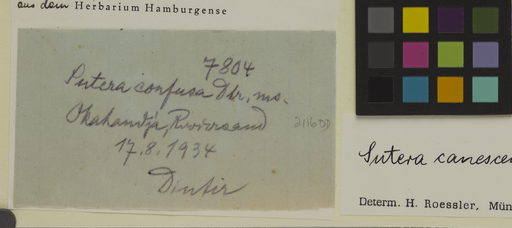 aus dem Herbarium Hamburgense
7804
Sutera confusa Dtr. ms.
Okahandja, Reviersand
2116DD
17.8.1934
Dinter
Sutera canescen
Determ. H. Roessler, Mün